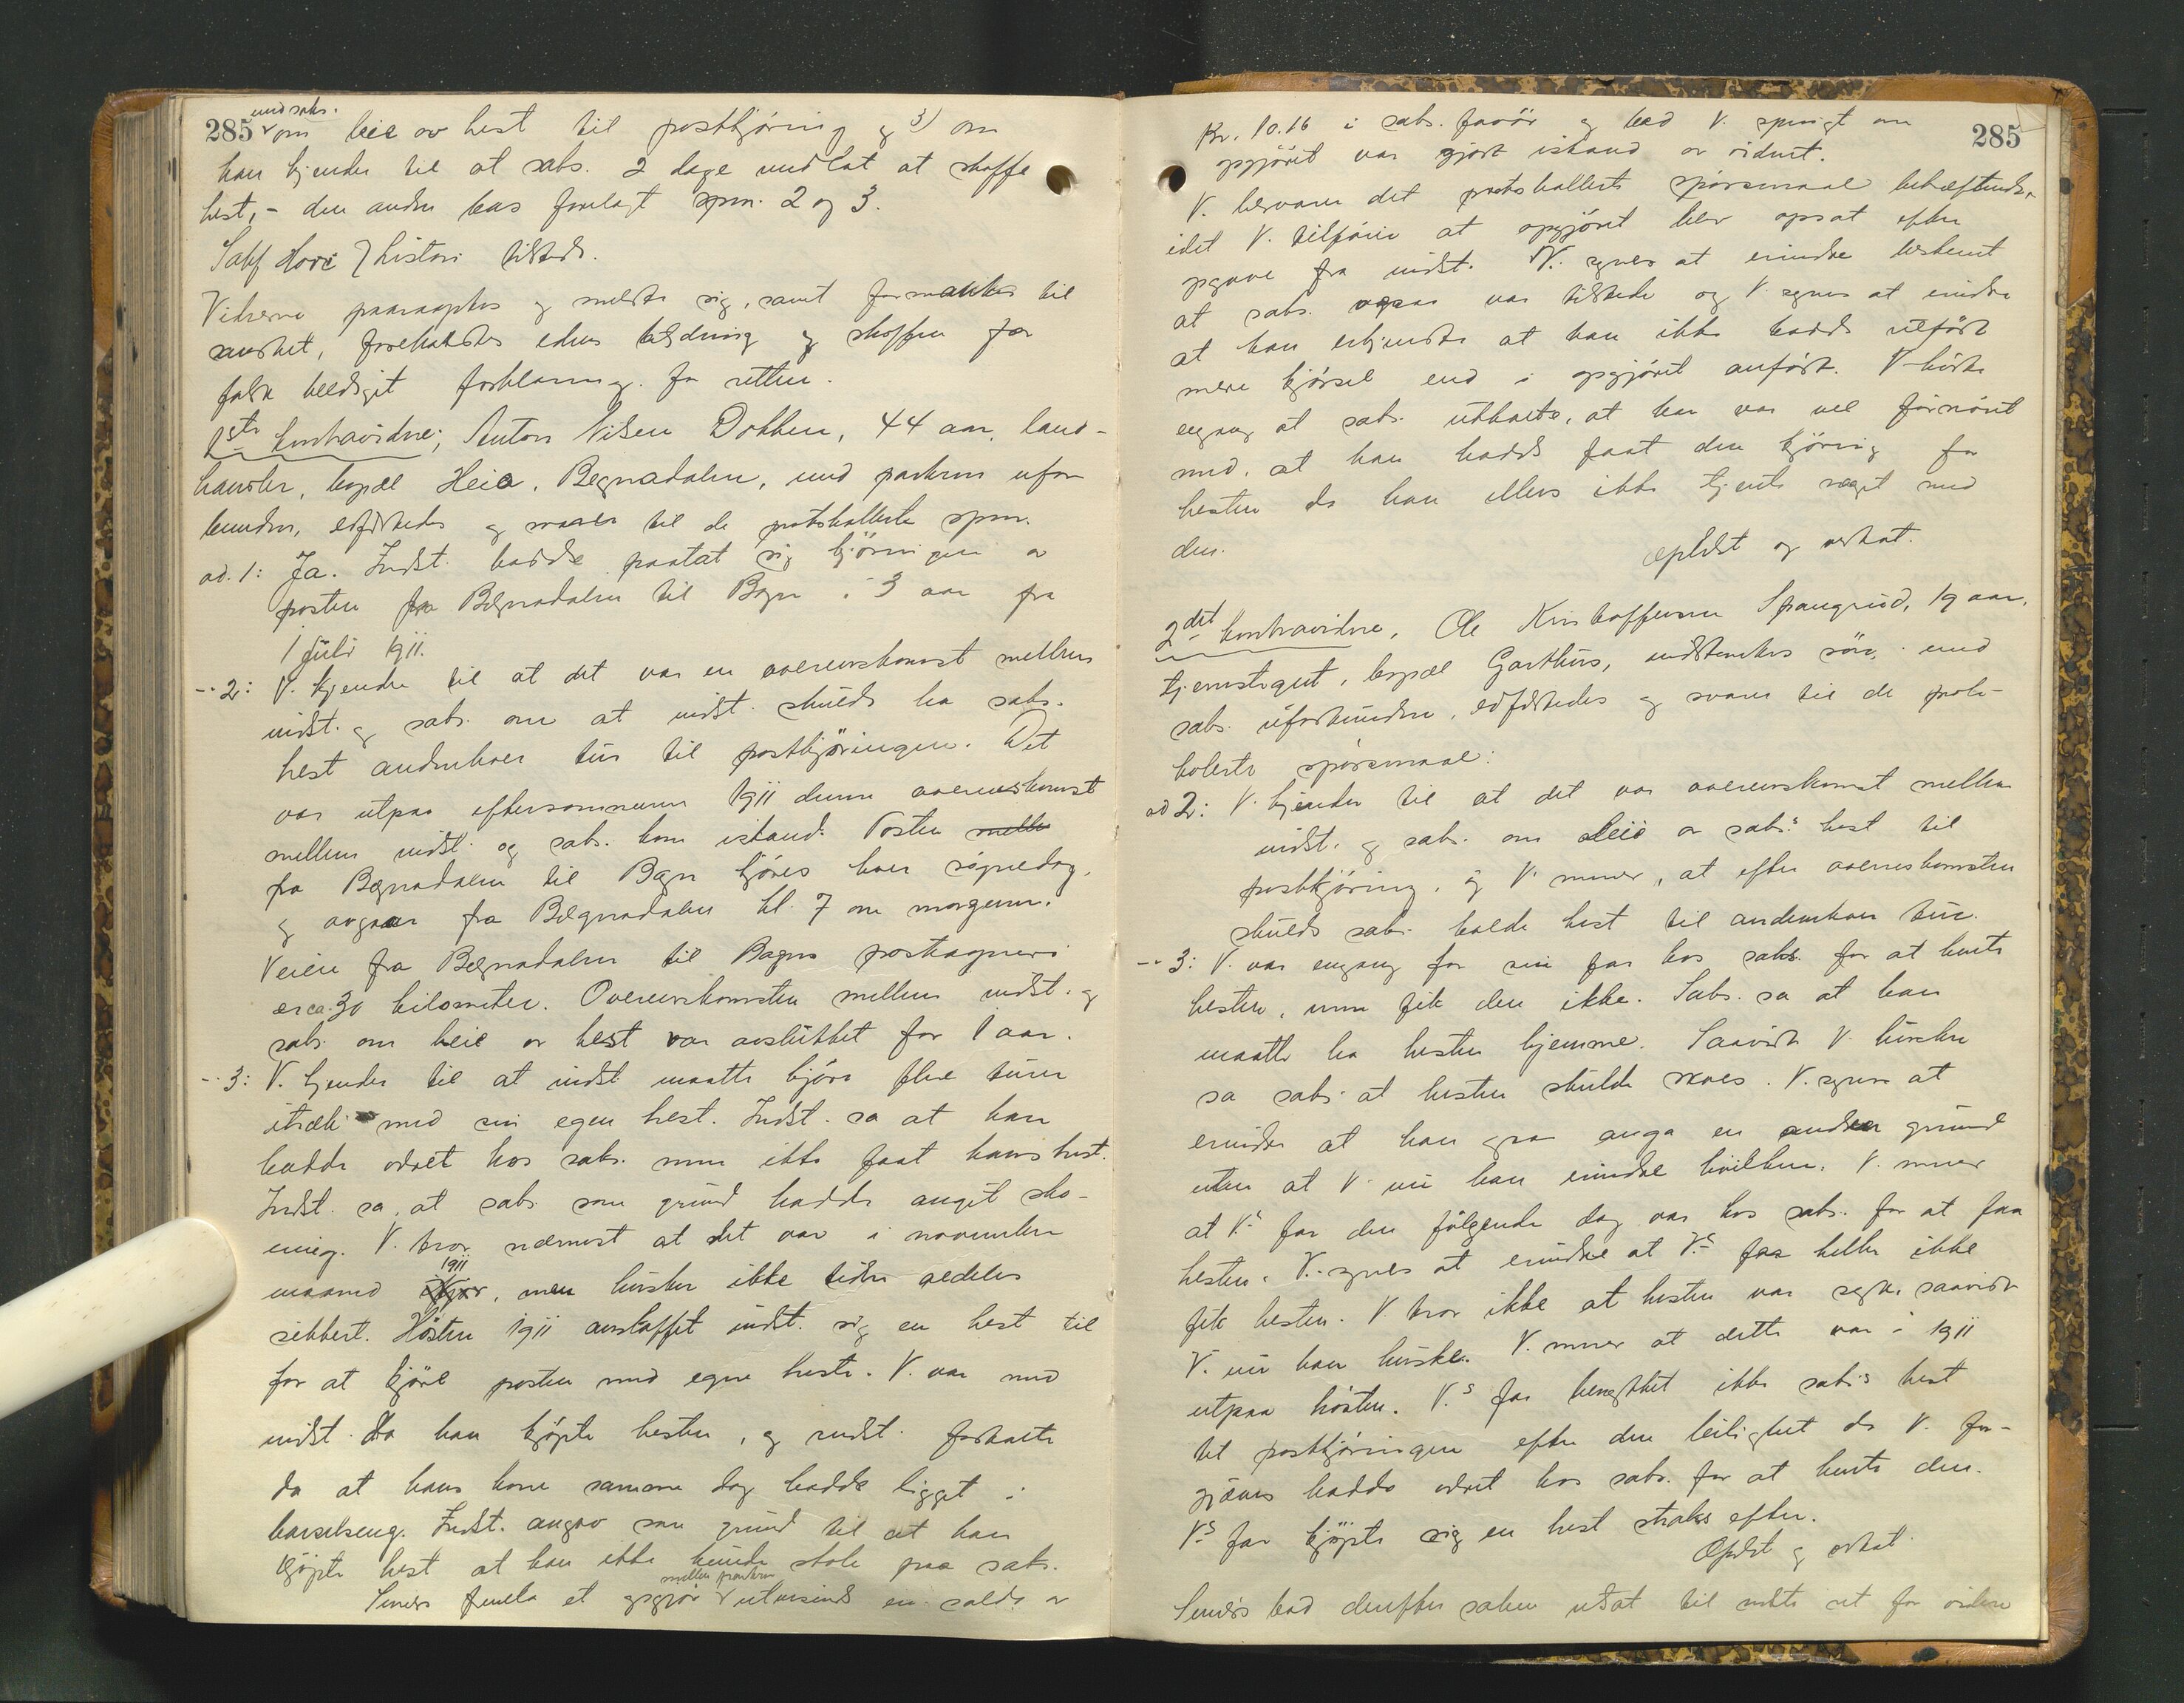 med saks.
285 om leie av hest til postkjøring og 3) om
han kjender til at saks. 2 dage undlat at skaffe
hest, - den anden bes forelagt spm. 2 og 3.
Sakf Hove tilstede.
Vidnerne paaraaptes og meldte sig, samt formantes til
sandhet, foreholdtes edens betydning og straffen for
falsk beediget forklaring for retten.
1ste kontravidne; Anton Nilsen Dokken, 44 aar, land-
handler, bopæl Heia, Begnadalen, med parterne ufor
bunden, edfæstedes og svarer til de protokollerte spm.
ad. 1: Ja. Indst. hadde paatat sig kjøringen av
posten fra Begnadalen til Bagn i 3 aar fra
1 juli 1911.
-- 2: V. kjender til at det var en overenskomst mellem
indst. og saks. om at indst. skulde ha saks.
hest andenhver tur til postkjøringen. Det
var utpaa eftersommeren 1911 denne overenskomst
mellem indst. og saks. kom istand. Posten melle
fra Begnadalen til Bagn kjøres hver søgnedag,
og avgaar fra Begnadalen kl. 7 om morgenen.
Veien fra Begnadalen til Bagns postaapneri
er ca. 30 kilometer. Overenskomsten mellem indst. og
saks. om leie av hest var avsluttet for 1 aar.
-- 3: V. kjender til at indst. maatte kjøre flere turer
itræk med sin egen hest. Indst. sa at han
hadde været hos saks. men ikke faat hans hest.
Indst. sa, at saks. som grund hadde angit sko-
ening. V. tror nærmest at det var i november
1911
maaned , men husker ikke tiden aldeles
sikkert. Høsten 1911 anskaffet indst. sig en hest til
for at kjøre posten med egne heste. V. var med
indst. da han kjøpte hesten, og indst. fortalte
da at hans kone samme dag hadde ligget i
barselseng. Indst. angav som grund til at han
kjøpte hest at han ikke kunde stole paa saks.
mellem parterne
Senere fremla et opgjør utvisende en saldo av
285
Kr. 10.16 i saks. favør og bad V. spurgt om
opgjøret var gjort istand og ordnet.
V. besvarer det protokollerte spørsmaal bekræftende,
idet V. tilføier at opgjøret blev opsat efter
opgave fra indst. V. synes at erindre bestemt
at saks. ogsaa var tilstede og V. synes at erindre
at han erkjendte at han ikke hadde utført
mere kjørsel end i opgjøret anført. V. hørte
engang at saks. uttalte, at han var vel fornøiet
med, at han hadde faat den kjøring for
hesten da han ellers ikke tjente noget med
den.
Oplæst og vedtat.
2det kontravidne, Ole Kristoffersen Spangrud, 19 aar,
tjenestegut, bopæl Garthus, indstevnktes søn, med
saks. uforbunden, edfæstedes og svarer til de proto-
kolerte spørsmaal:
ad 2: V. kjender til at det var overenskomst mellem
indst. og saks. om leie av saks.s hest til
postkjøring, og V. mener, at efter overenskomsten
skulde saks. holde hest til andenhver tur.
-- 3: V. var engang for sin far hos saks. for at hente
hesten, men fik den ikke. Saks. sa at han
maatte ha hesten hjemme. Saavidt V. husker
sa saks. at hesten skulde skoes. V. synes at
erindre at han ogsaa anga en anden grund
uten at V. nu kan erindre hvilken. V. mener
at V.s far den følgende dag var hos saks. for at faa
hesten. V. synes at erindre at V.s far heller ikke
fik hesten. V. tror ikke at hesten var syk, saavidt
V. nu kan huske. V. mener at dette var i 1911
utpaa høsten. V.s far benyttet ikke saks.s hest
til postkjøringen efter den leilighet da V. for-
gjæves hadde været hos saks. for at hente den.
V.s far kjøpte sig en hest straks efter.
Oplæst og vedtat.
Senere bad derefter saken utsat til næste ret for videre